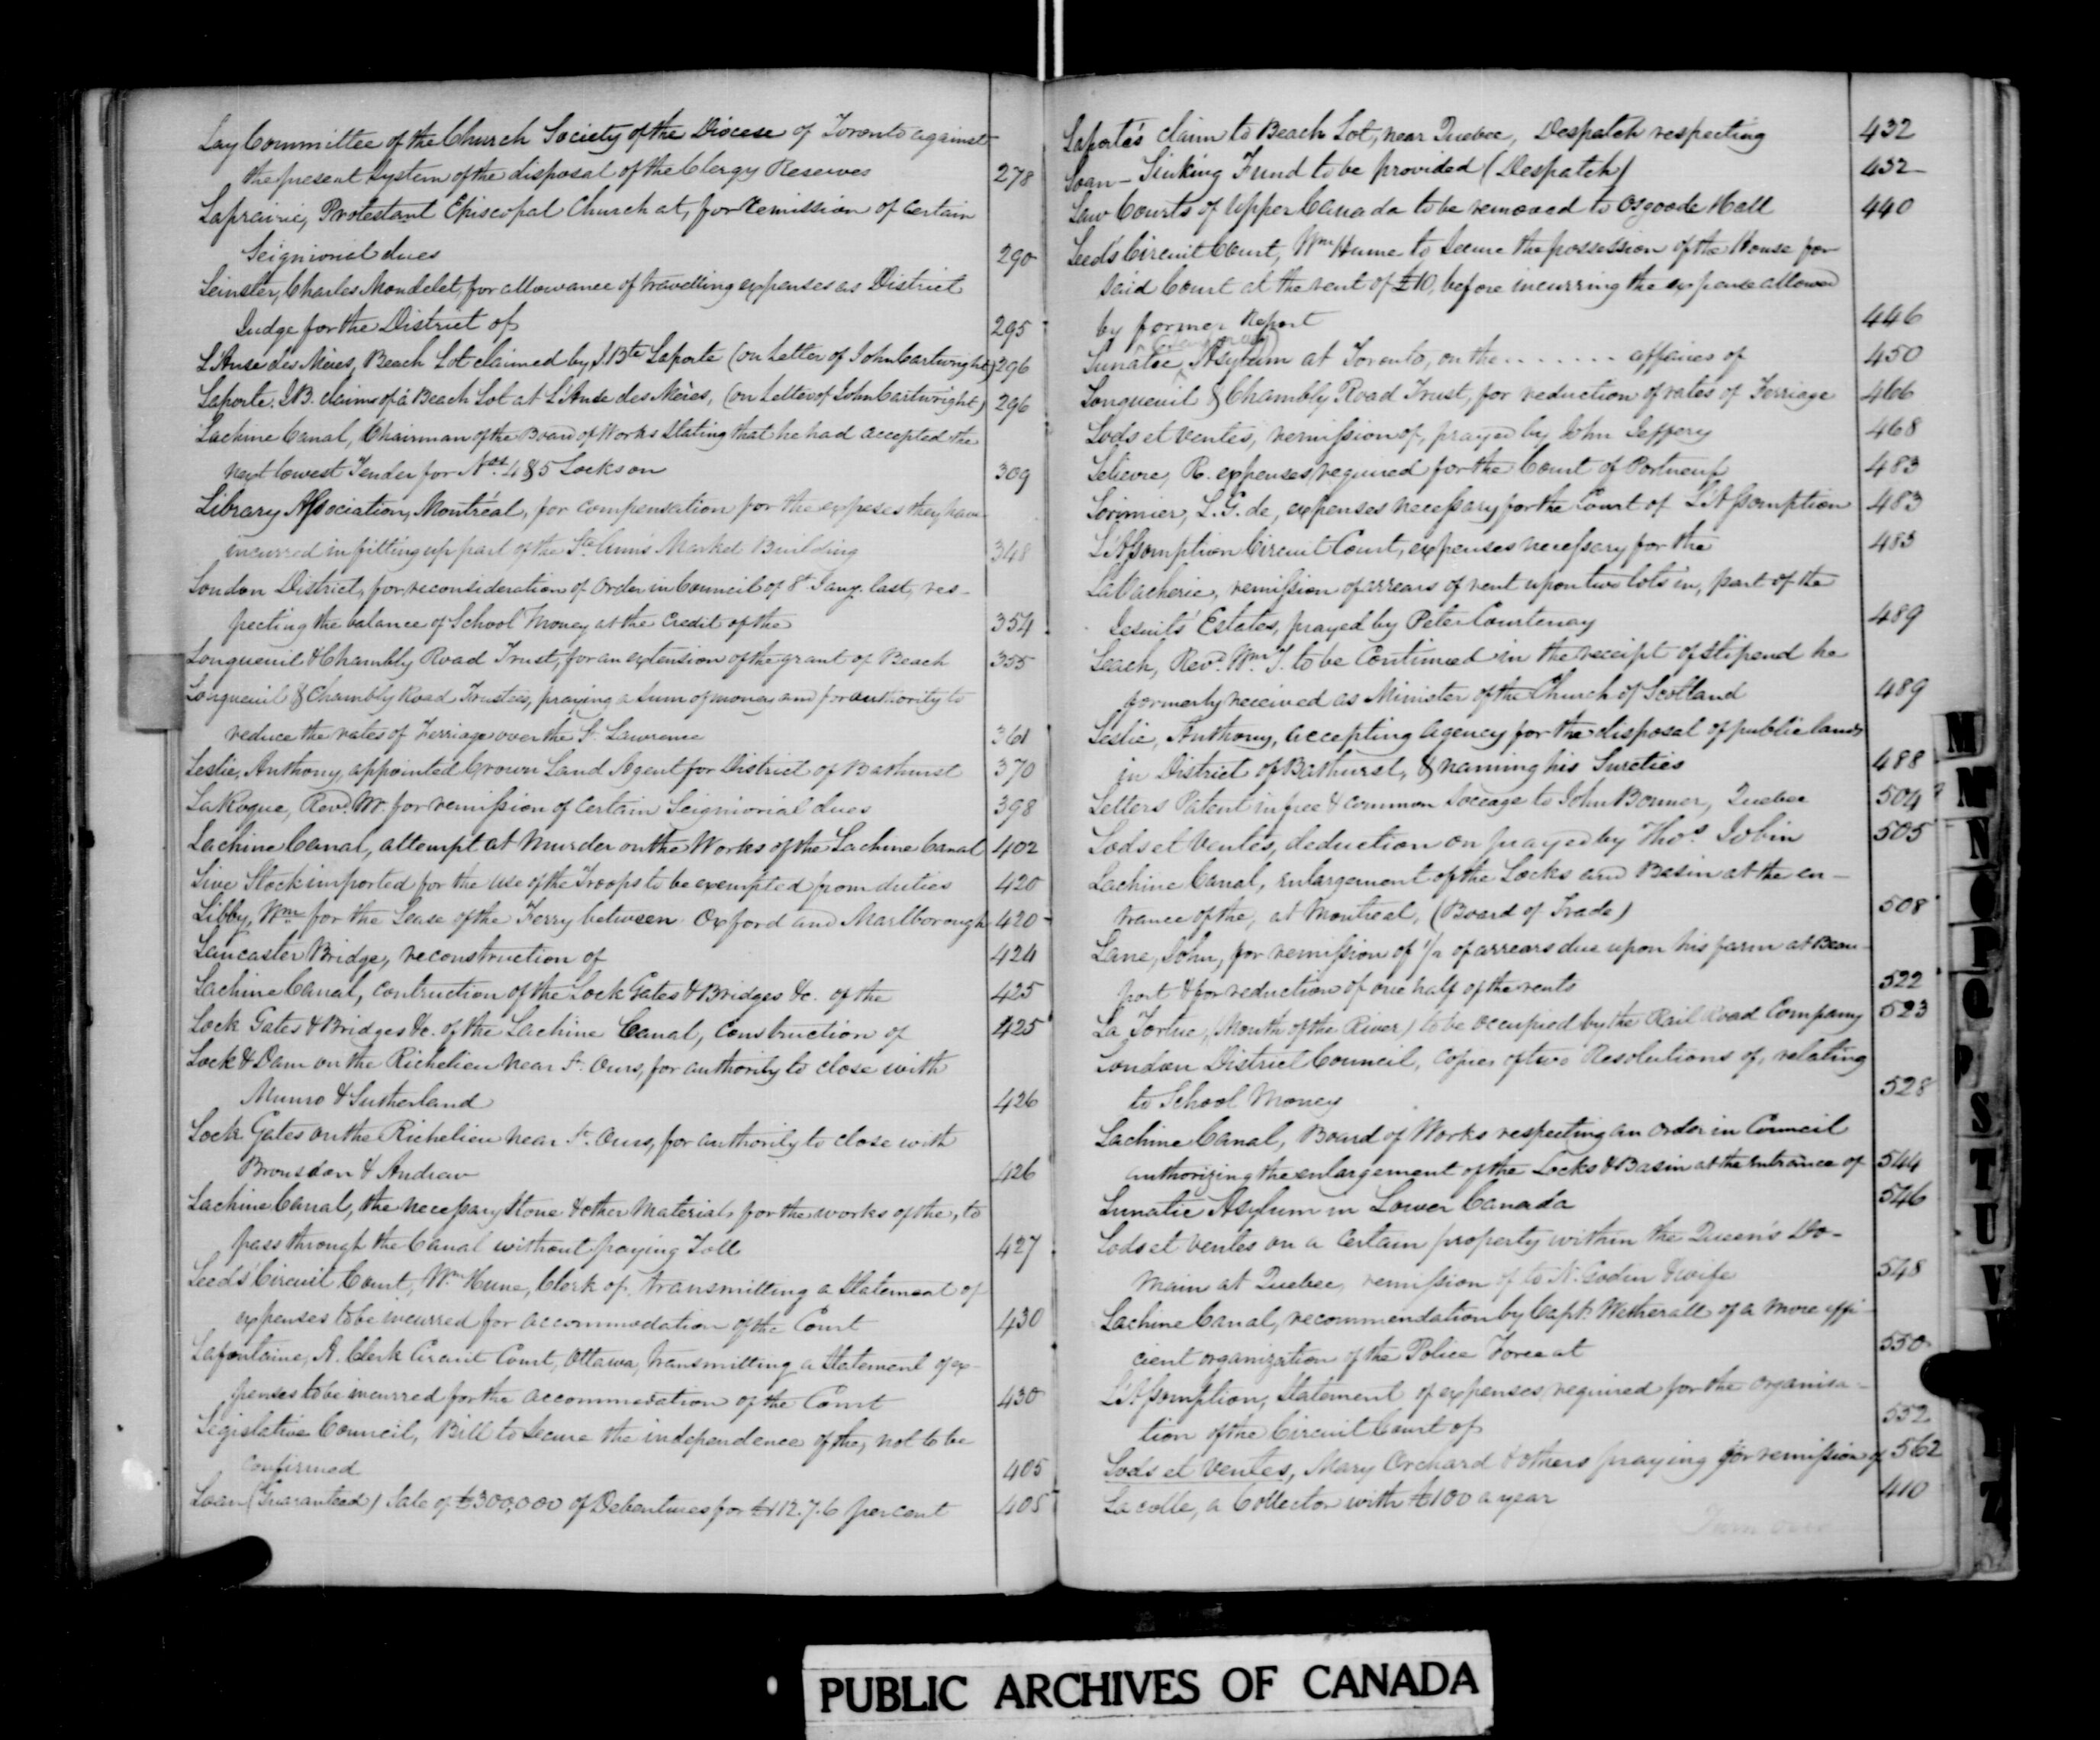 Lay Committee of the Church Society of the Diocese of Toronto against
the present System of the disposal of the Clergy Reserves 278
Laprairie, Protestant Episcopal Church at, for remission of certain
Seignioral dues 290
Leinster, Charles Mondelet, for allowance of travelling expenses as District
Judge for the District of 295
L'Anse des Mères, Beach Lot claimed by J. Bte Laporte (on Letter of John Cartwright) 296
Laporte, J.B. claims of a Beach Lot at L'Anse des Mères, (on Letter of John Cartwright) 296
Lachine Canal, Chairman of the Board of Works stating that he had accepted the
next lowest Tender for Nos. 4 & 5 Locks on 309
Library Association, Montréal, for compensation for the expeses they have
incurred in fitting up part of the Ste Ann's Market Building 348
London District, for reconsideration of Order in Council of 8th Jany. last, res-
pecting the balance of School Money at the Credit of the 354
Longueuil & Chambly Road Trust, for an extension of the grant of Beach 355
Longueuil & Chambly Road Trustees, praying a sum of money and for authority to
reduce the rates of Ferriage over the St. Lawrence 361
Leslie, Anthony, appointed Crown Land Agent for District of Bathurst 370
LaRoque, Revd. Mr. for remission of certain Seigniorial dues 398
Lachine Canal, attempt at Murder on the Works of the Lachine Canal 402
Live Stock imported for the use of the Troops to be exempted from duties 420
Libby, Wm for the Lease of the Ferry between Oxford and Marlborough 420
Lancaster Bridge, reconstruction of 424
Lachine Canal, contruction of the Lock Gates & Bridges &c. of the 425
Lock Gates & Bridges &c. of the Lachine Canal, Construction of 425
Lock & Dam on the Richelieu near St. Ours, for authority to close with
Munro & Sutherland 426
Lock Gates on the Richelieu near St. Ours, for authority to close with
Bronsdon & Andrew 426
Lachine Canal, the necessary stone & other Materials for the works of the, to
pass through the Canal without paying Toll 427
Leeds Circuit Court, Wm Hume, Clerk of, transmitting a Statement of
expenses to be incurred for accommodation of the Court 430
Lafontaine, A. Clerk Circuit Court, Ottawa, transmitting a Statement of ex-
penses to be incurred for the accommodation of the Court 430
Legislative Council, Bill to secure the independence of the, not to be
confirmed 405
Loan (Guaranteed) Sale of £300,000 of Debentures for £112.7.6 per cent 405
Laporte's claim to Beach Lot, near Quebec, Despatch respecting 432
Loan – Sinking Fund to be provided (Despatch) 432
Law Courts of Upper Canada to be removed to Osgoode Hall 440
Leeds Circuit Court, Wm Hume to secure the possession of the House for
said Court at the rent of £10, before incurring the expense allowed
by former Report 446
Lunatic Asylum at Toronto, on the . . . . . . . affairs of 450
Longueuil & Chambly Road Trust, for reduction of rates of Ferriage 466
Lods et Ventes, remission of, prayed by John Jeffery 468
Lelievre, R. expenses required for the Court of Portneuf 483
Lorimier, L.G. de, expenses necessary for the Court of L'Assomption 483
L'Assomption Circuit Court, expenses necessary for the 483
LaVacherie, remission of arrears of rent upon two lots in, part of the
Jesuits' Estates, prayed by Peter Courtenay 489
Leach, Revd. Wm T. to be Continued in the receipt of stipend he
formerly received as Minister of the Church of Scotland 489
Leslie, Anthony, accepting Agency for the disposal of public lands
in District of Bathurst, & naming his Sureties 488
Letters Patent in free & common soccage to John Bonner, Quebec 504
Lods et Ventes, deduction on prayed by Thos. Tobin 505
Lachine Canal, enlargement of the Locks and Basin at the en-
trance of the, at Montreal, (Board of Trade) 508
Lane, John, for remission of 1/2 of arrears due upon his farm at Beau-
port & for reduction of one half of the rents 522
La Tortue, (Mouth of the River) to be occupied by the Rail Road Company 523
London District Council, Copies of two Resolutions of, relating
to School Money 528
Lachine Canal, Board of Works respecting an Order in Council
authorizing the enlargement of the Locks & Basin at the Entrance of 544
Lunatic Asylum in Lower Canada 546
Lods et Ventes on a certain property within the Queen's Do-
main at Quebec, remission of to N. Godin & wife 548
Lachine Canal, recommendation by Capt. Wetherall of a more effi-
cient organization of the Police Force at 550
L'Assomption, Statement of expenses required for the organisa-
tion of the Circuit Court of 552
Lods et Ventes, Mary Orchard & others praying for remission of 562
Lacolle, a Collector with £100 a year 410
Turn over
M
N
O
P
Q
S
T
U
V
PUBLIC ARCHIVES OF CANADA